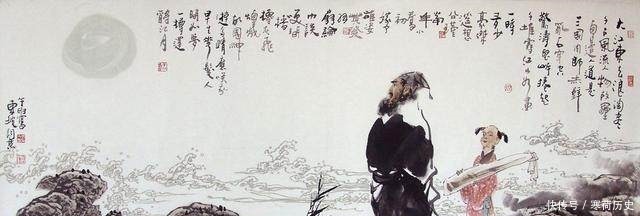 大江東去浪淘盡
千古風流人物故壘
西邊人道是
三國周郎赤壁
亂石穿空
驚濤裂岸捲起
千堆雪江山如畫
一時
多少
豪傑
遙想
公瑾
當年
小喬
初
嫁
了
雄姿
英發
羽扇
綸巾
談笑
間
檣
櫓灰飛
煙滅
故國神
遊多情應笑我
早生華髮人
間如夢
一樽還
酹江月
快传号 / 寒荷历史